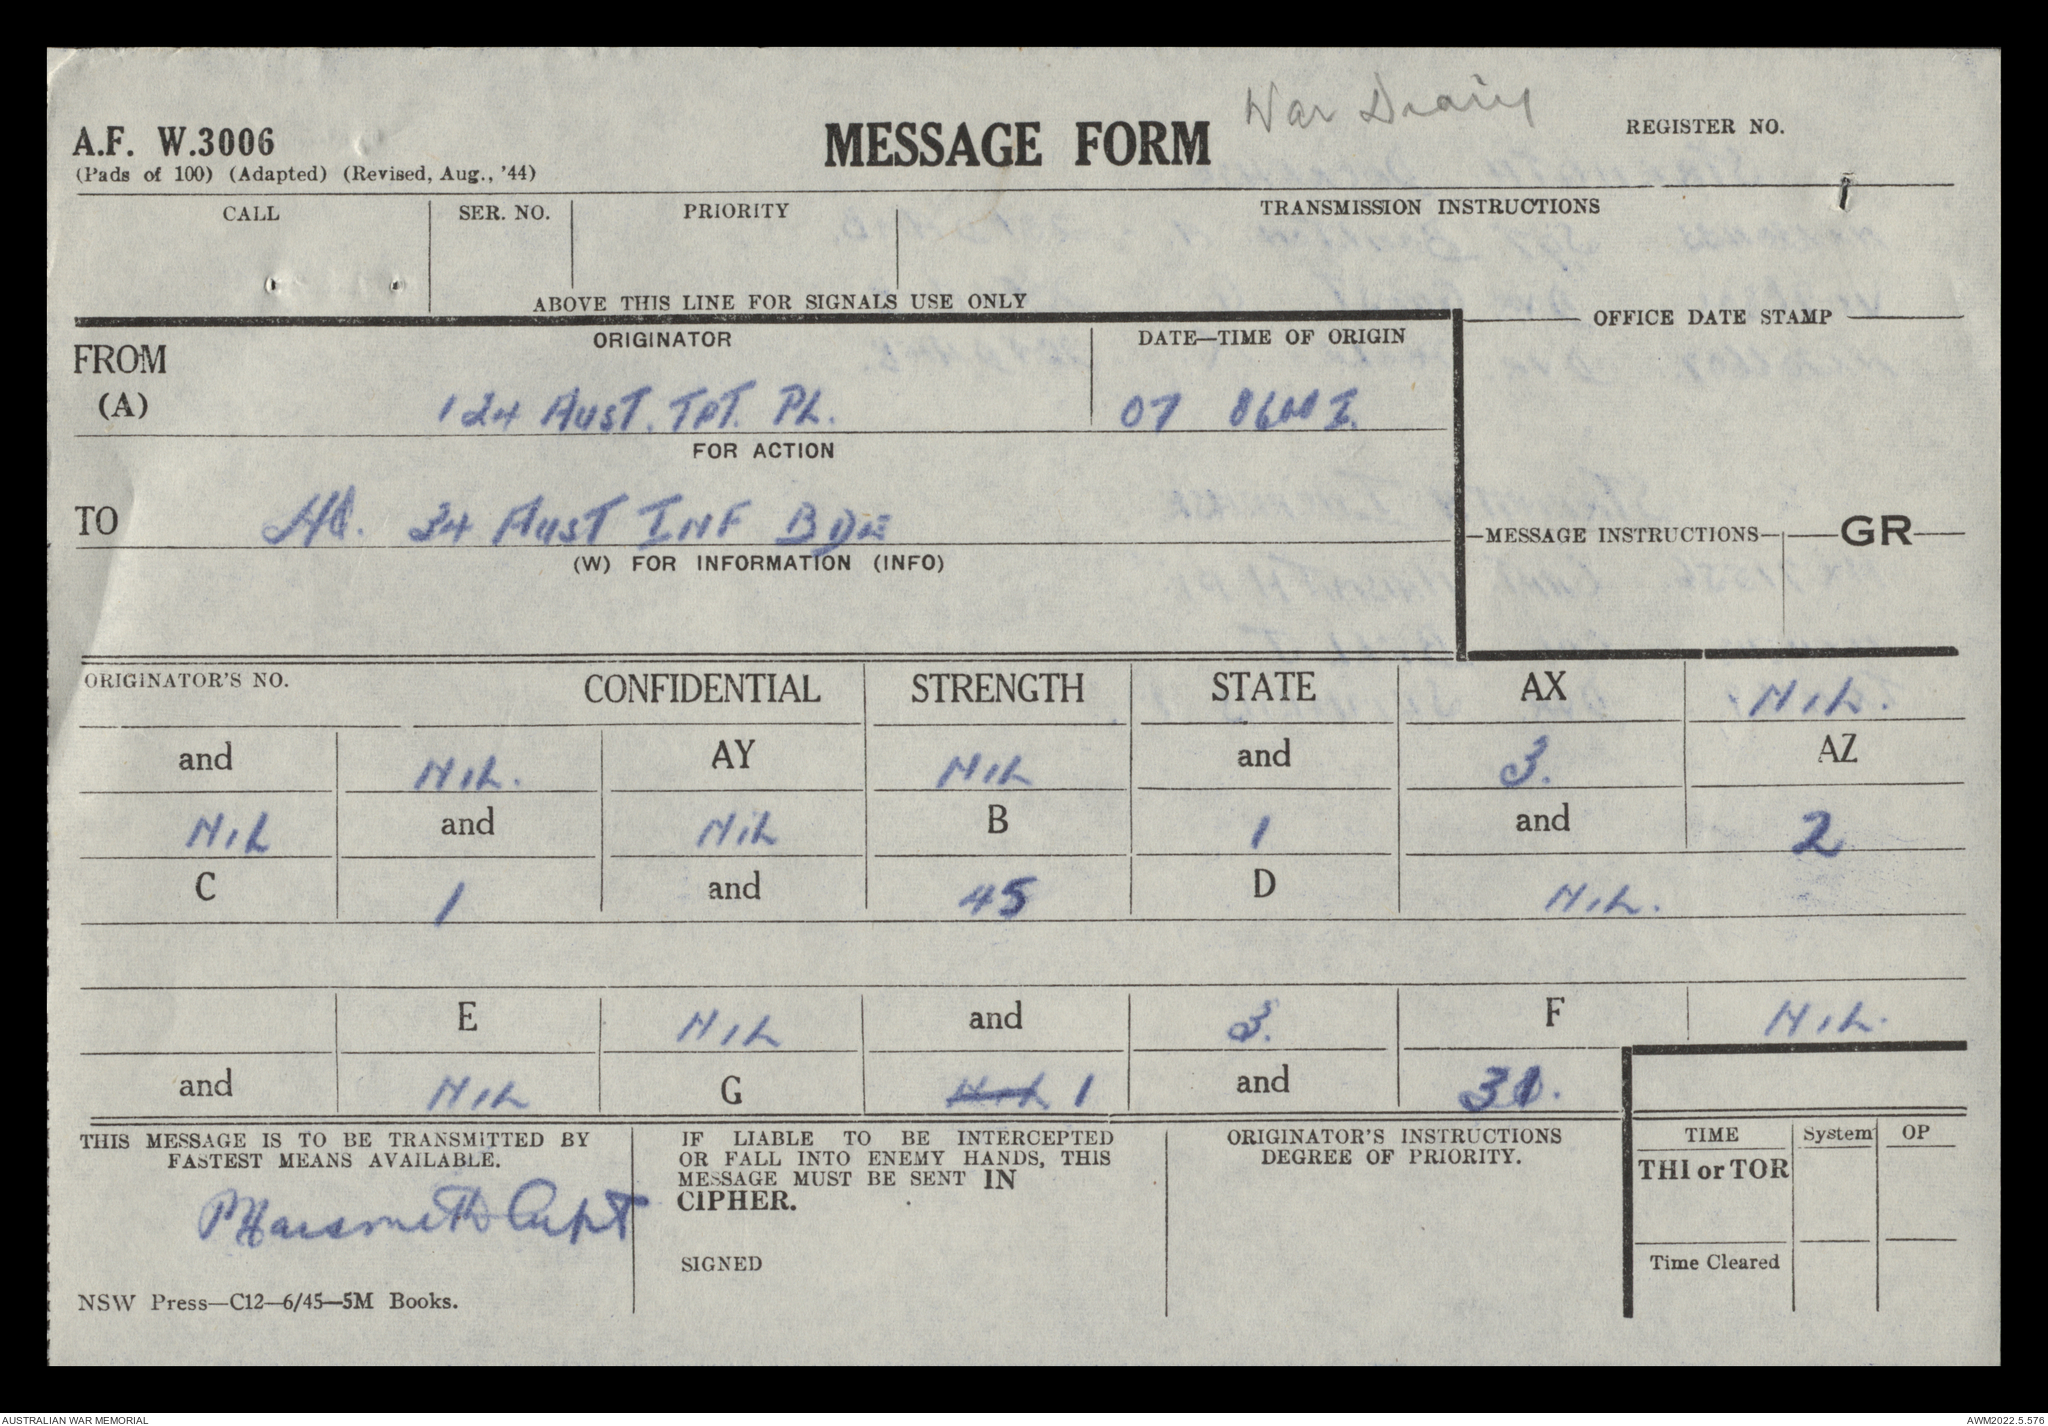 War Diary
A.F. W.3006
MESSAGE FORM
REGISTER NO.
(Pads of 100) (Adapted) (Revised, Aug., '44)
CALL SER. NO. PRIORITY TRANSMISSION INSTRUCTIONS
ABOVE THIS LINE FOR SIGNALS USE ONLY
ORIGINATOR DATE—TIME OF ORIGIN OFFICE DATE STAMP
FROM
(A) 124 AUST. TPT. PL. 07 0600 I.
FOR ACTION
TO HQ. 34 AUST INF BDE
MESSAGE INSTRUCTIONS GR
(W) FOR INFORMATION (INFO)
ORIGINATOR'S NO. CONFIDENTIAL STRENGTH STATE AX NIL.
and NIL. AY NIL and 3. AZ
NIL and NIL B 1 and 2
C 1 and 45 D NIL.
E NIL and 3. F NIL.
and NIL G NIL 1 and 31.
THIS MESSAGE IS TO BE TRANSMITTED BY
FASTEST MEANS AVAILABLE.
Capt
NSW Press—C12—6/45—5M Books.
IF LIABLE TO BE INTERCEPTED
OR FALL INTO ENEMY HANDS, THIS
MESSAGE MUST BE SENT IN
CIPHER.
SIGNED
ORIGINATOR'S INSTRUCTIONS
DEGREE OF PRIORITY.
TIME System OP
THI or TOR
Time Cleared
AUSTRALIAN WAR MEMORIAL AWM2022.5.576